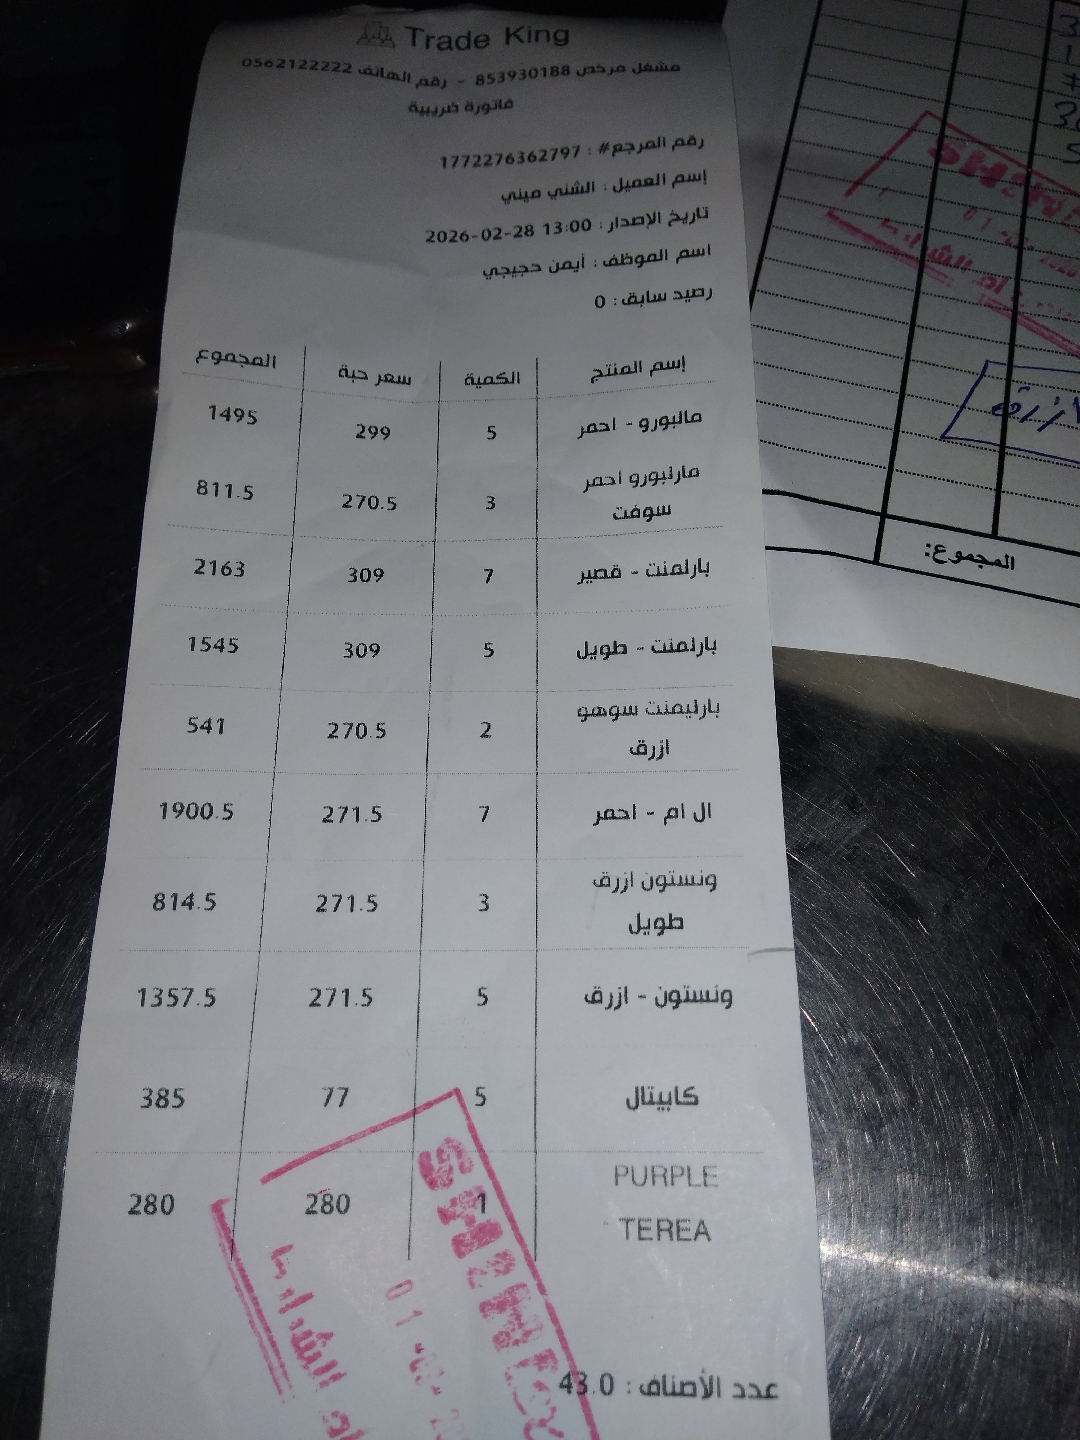 Trade King
مشغل مرخص 853930188 - رقم الهاتف 0562122222
فاتورة ضريبية
رقم المرجع# : 1772276362797
إسم العميل : الشني ميني
تاريخ الإصدار : 13:00 2026-02-28
اسم الموظف : أيمن حجيجي
رصيد سابق : 0
إسم المنتج الكمية سعر حبة المجموع
مالبورو - احمر 5 299 1495
مارلبورو احمر سوفت 3 270.5 811.5
بارلمنت - قصير 7 309 2163
بارلمنت - طويل 5 309 1545
بارليمنت سوهو ازرق 2 270.5 541
ال ام - احمر 7 271.5 1900.5
ونستون ازرق طويل 3 271.5 814.5
ونستون - ازرق 5 271.5 1357.5
كابيتال 5 77 385
PURPLE TEREA 1 280 280
عدد الأصناف : 43.0
المجموع:
ازرق